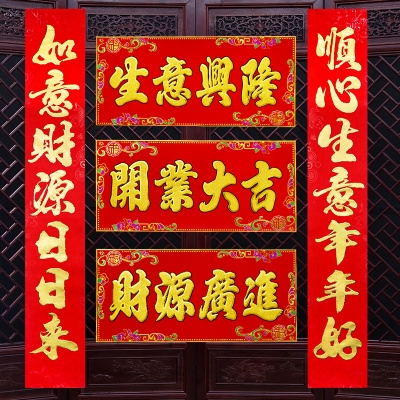 順心生意年年好
如意財源日日来
生意興隆
開業大吉
財源廣進